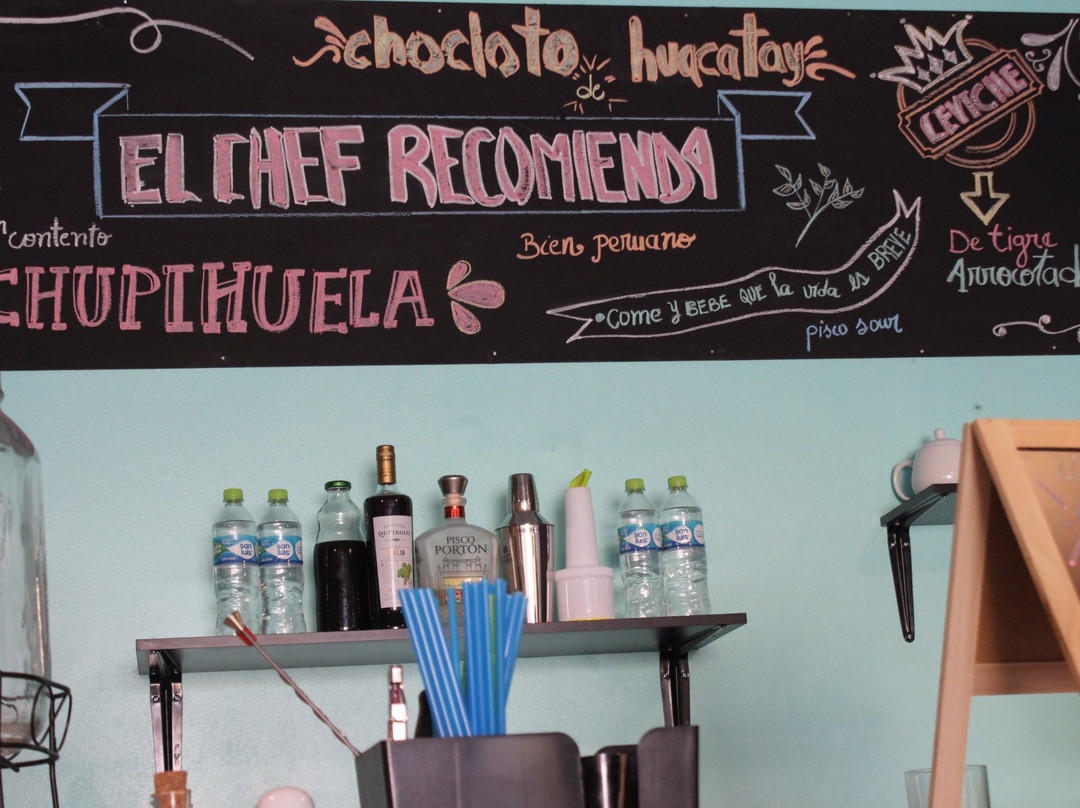 chocloto
de
huacatay
EL CHEF RECOMIENDA
CEVICHE
De tigre
contento
CHUPIHUELA
Bien peruano
Come y BEBE QUE la vida es BREVE
pisco sour
san luis
san luis
PISCO
PORTÓN
san luis
san luis